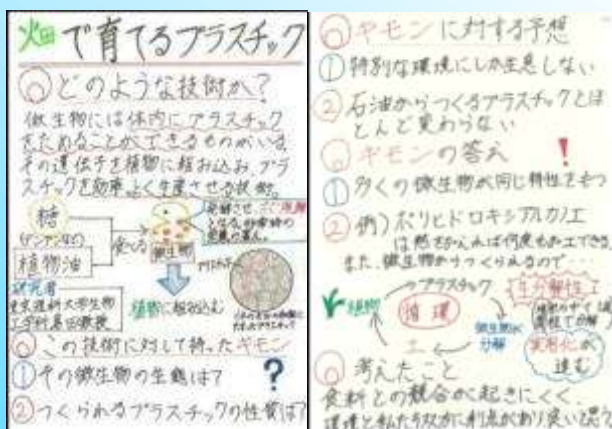 畑で育てるプラスチック
◎どのような技術か?
微生物には体内にプラスチック
をためることができるものがいる。
その遺伝子を植物に組み込み、プラ
スチックを効率よく生産させる技術。
糖
植物油
食べる
微生物
植物に組み込む
研究者
◎この技術に対して持ったギモン
①その微生物の生態は?
②つくられるプラスチックの性質は?
?
◎ギモンに対する予想
①特別な環境にしか生息しない
②石油からつくるプラスチックとほ
とんど変わらない
◎ギモンの答え
!
①多くの微生物が同じ特性をもつ
②例)ポリヒドロキシアルカノエ
は熱をかえれば何度も加工できる
また、微生物からつくられるので…
プラスチック
生分解性
植物
循環
微生物が
分解
土
実用化が
進む
◎考えたこと
食料との競合が起きにくく、
環境と私たち双方に利点があり良いと思う